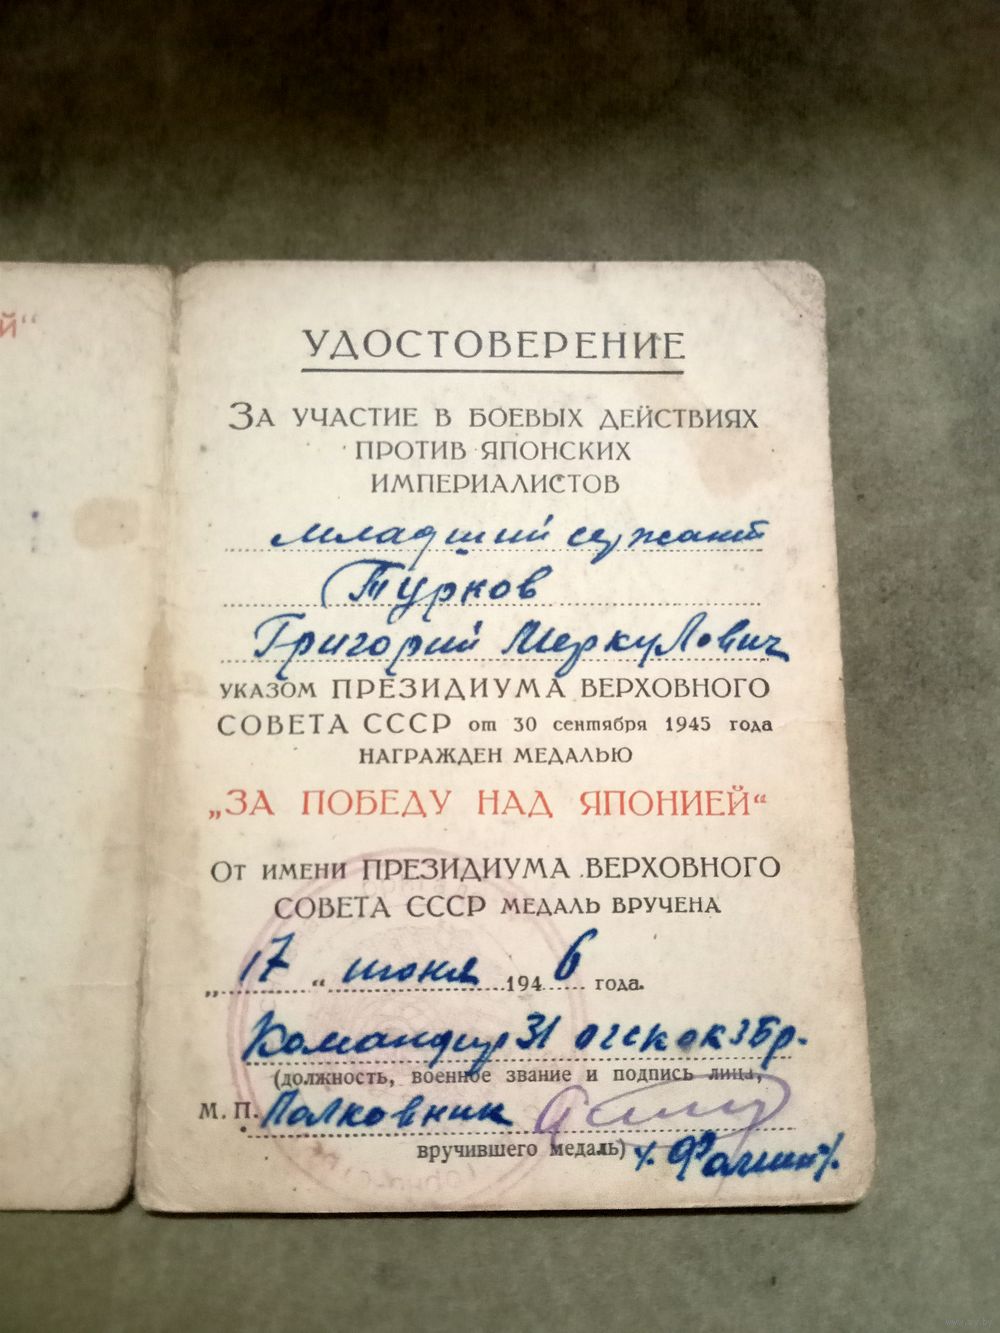 й“
УДОСТОВЕРЕНИЕ
За участие в боевых действиях
против японских
империалистов
Младший сержант
Турков
Григорий Меркулович
указом ПРЕЗИДИУМА ВЕРХОВНОГО
СОВЕТА СССР от 30 сентября 1945 года
награжден медалью
„ЗА ПОБЕДУ НАД ЯПОНИЕЙ“
От имени ПРЕЗИДИУМА ВЕРХОВНОГО
СОВЕТА СССР медаль вручена
„17“ июня 1946 года.
Командир 31
(должность, военное звание и подпись лица,
М. П. Полковник
вручившего медаль)